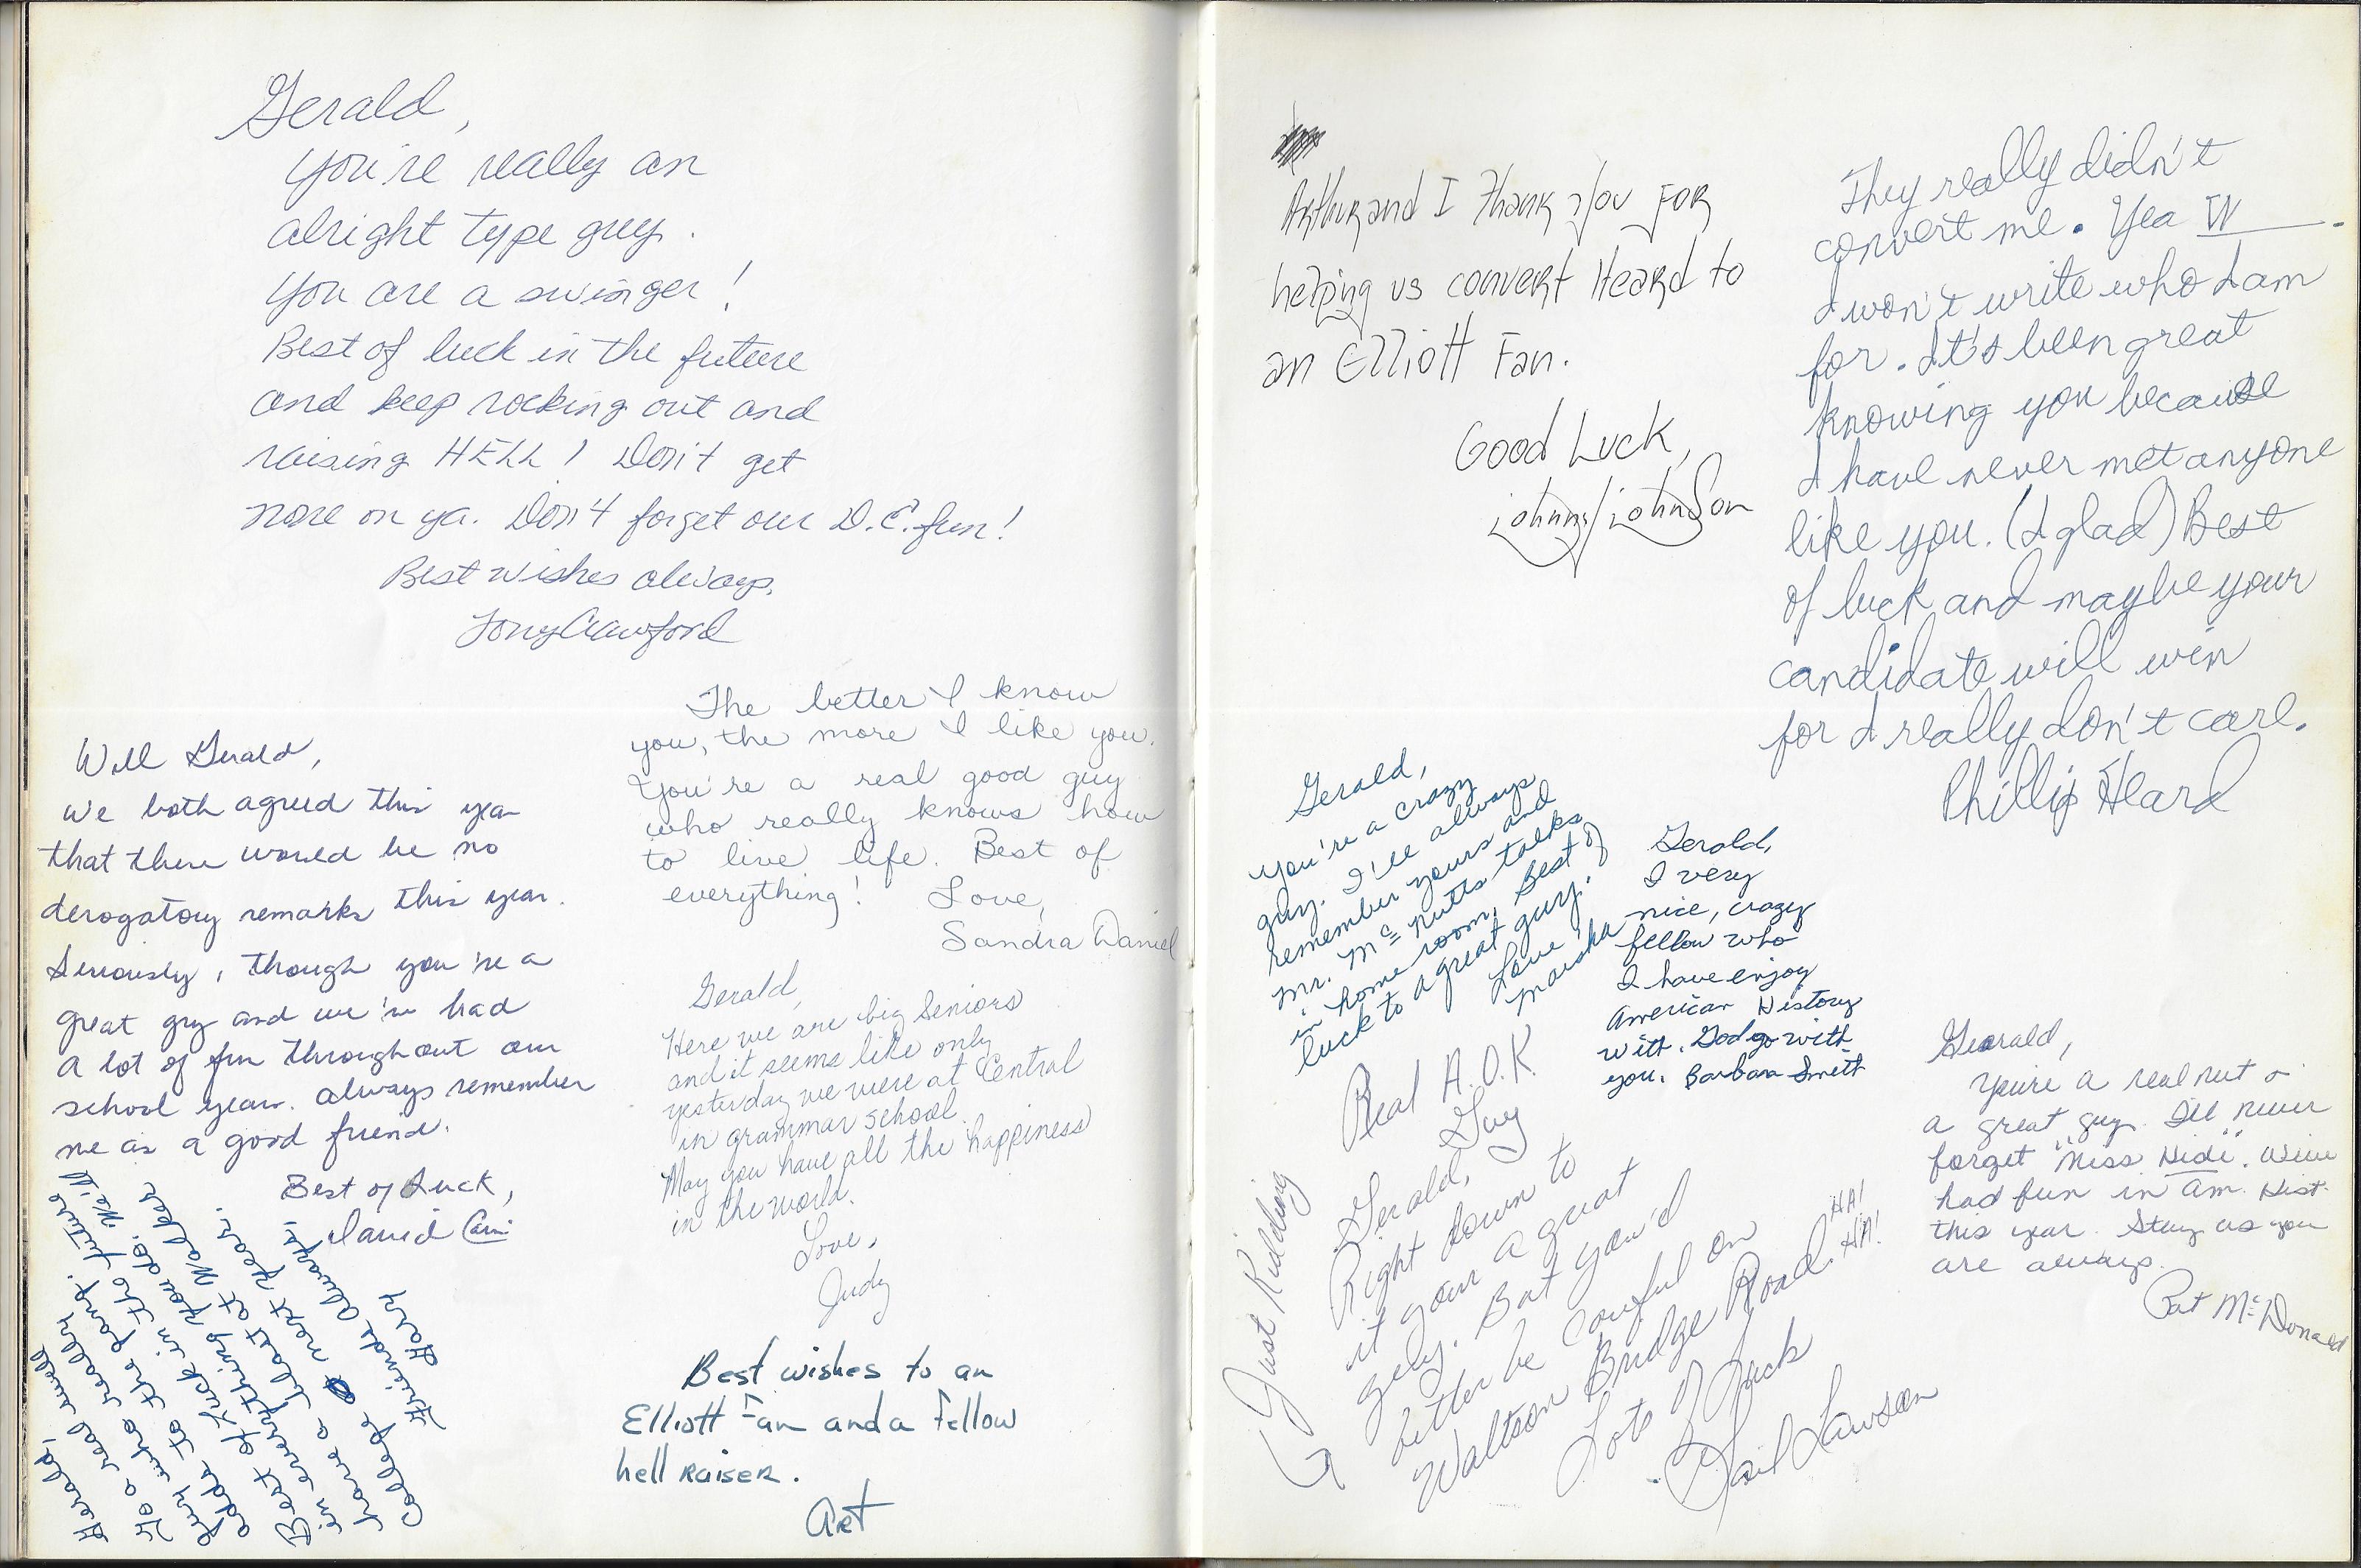 Gerald,
You're really an
alright type guy.
You are a swinger!
Best of luck in the future
and keep rocking out and
raising HELL! Don't get
none on ya. Don't forget our D.C. fun!
Best wishes always,
Tony Crawford
Well Gerald,
We both agreed this year
that there would be no
derogatory remarks this year.
Seriously, though you're a
great guy and we've had
a lot of fun throughout our
school years. Always remember
me as a good friend.
Best of Luck,
David
The better I know
you, the more I like you.
You're a real good guy
who really knows how
to live life. Best of
everything! Love,
Sandra Daniel
Gerald,
Here we are big Seniors
and it seems like only
yesterday we were at Central
in grammar school.
May you have all the happiness
in the world.
Love,
Judy
Gerald,
To a real swell
guy who really
adds to the gang.
Best of Luck in the future
in everything you do. We'll
have a blast at Walker
College next year.
Friends Always,
Gary
Best wishes to an
Elliott Fan and a Fellow
hell Raiser.
Art
Arthur and I Thank you For
helping us convert Heard to
an Elliott Fan.
Good Luck,
Johnny Johnson
They really didn't
convert me. Yea W____.
I won't write who I am
for. It's been great
knowing you because
I have never met anyone
like you. (I glad) Best
of luck and maybe your
candidate will win
for I really don't care.
Phillip Heard
Gerald,
You're a crazy
guy. I'll always
remember yours and
Mr. McNutts talks
in home room. Best of
luck to a great guy.
Love 'ha
Marsha
Gerald,
I very
nice, crazy
fellow who
I have enjoy
American History
with. God go with
you. Barbara Smith
Real A.O.K.
Guy
Gerald,
Right down to
it your a great
guy. But you'd
better be careful on
Waltson Bridge Road. HA! HA!
Lots of Luck
Gail Lawson
Just Kidding
Gearald,
You're a real nut &
a great guy. I'll never
forget "Miss Hidi". We've
had fun in Am. Hist.
this year. Stay as you
are always.
Pat McDonald